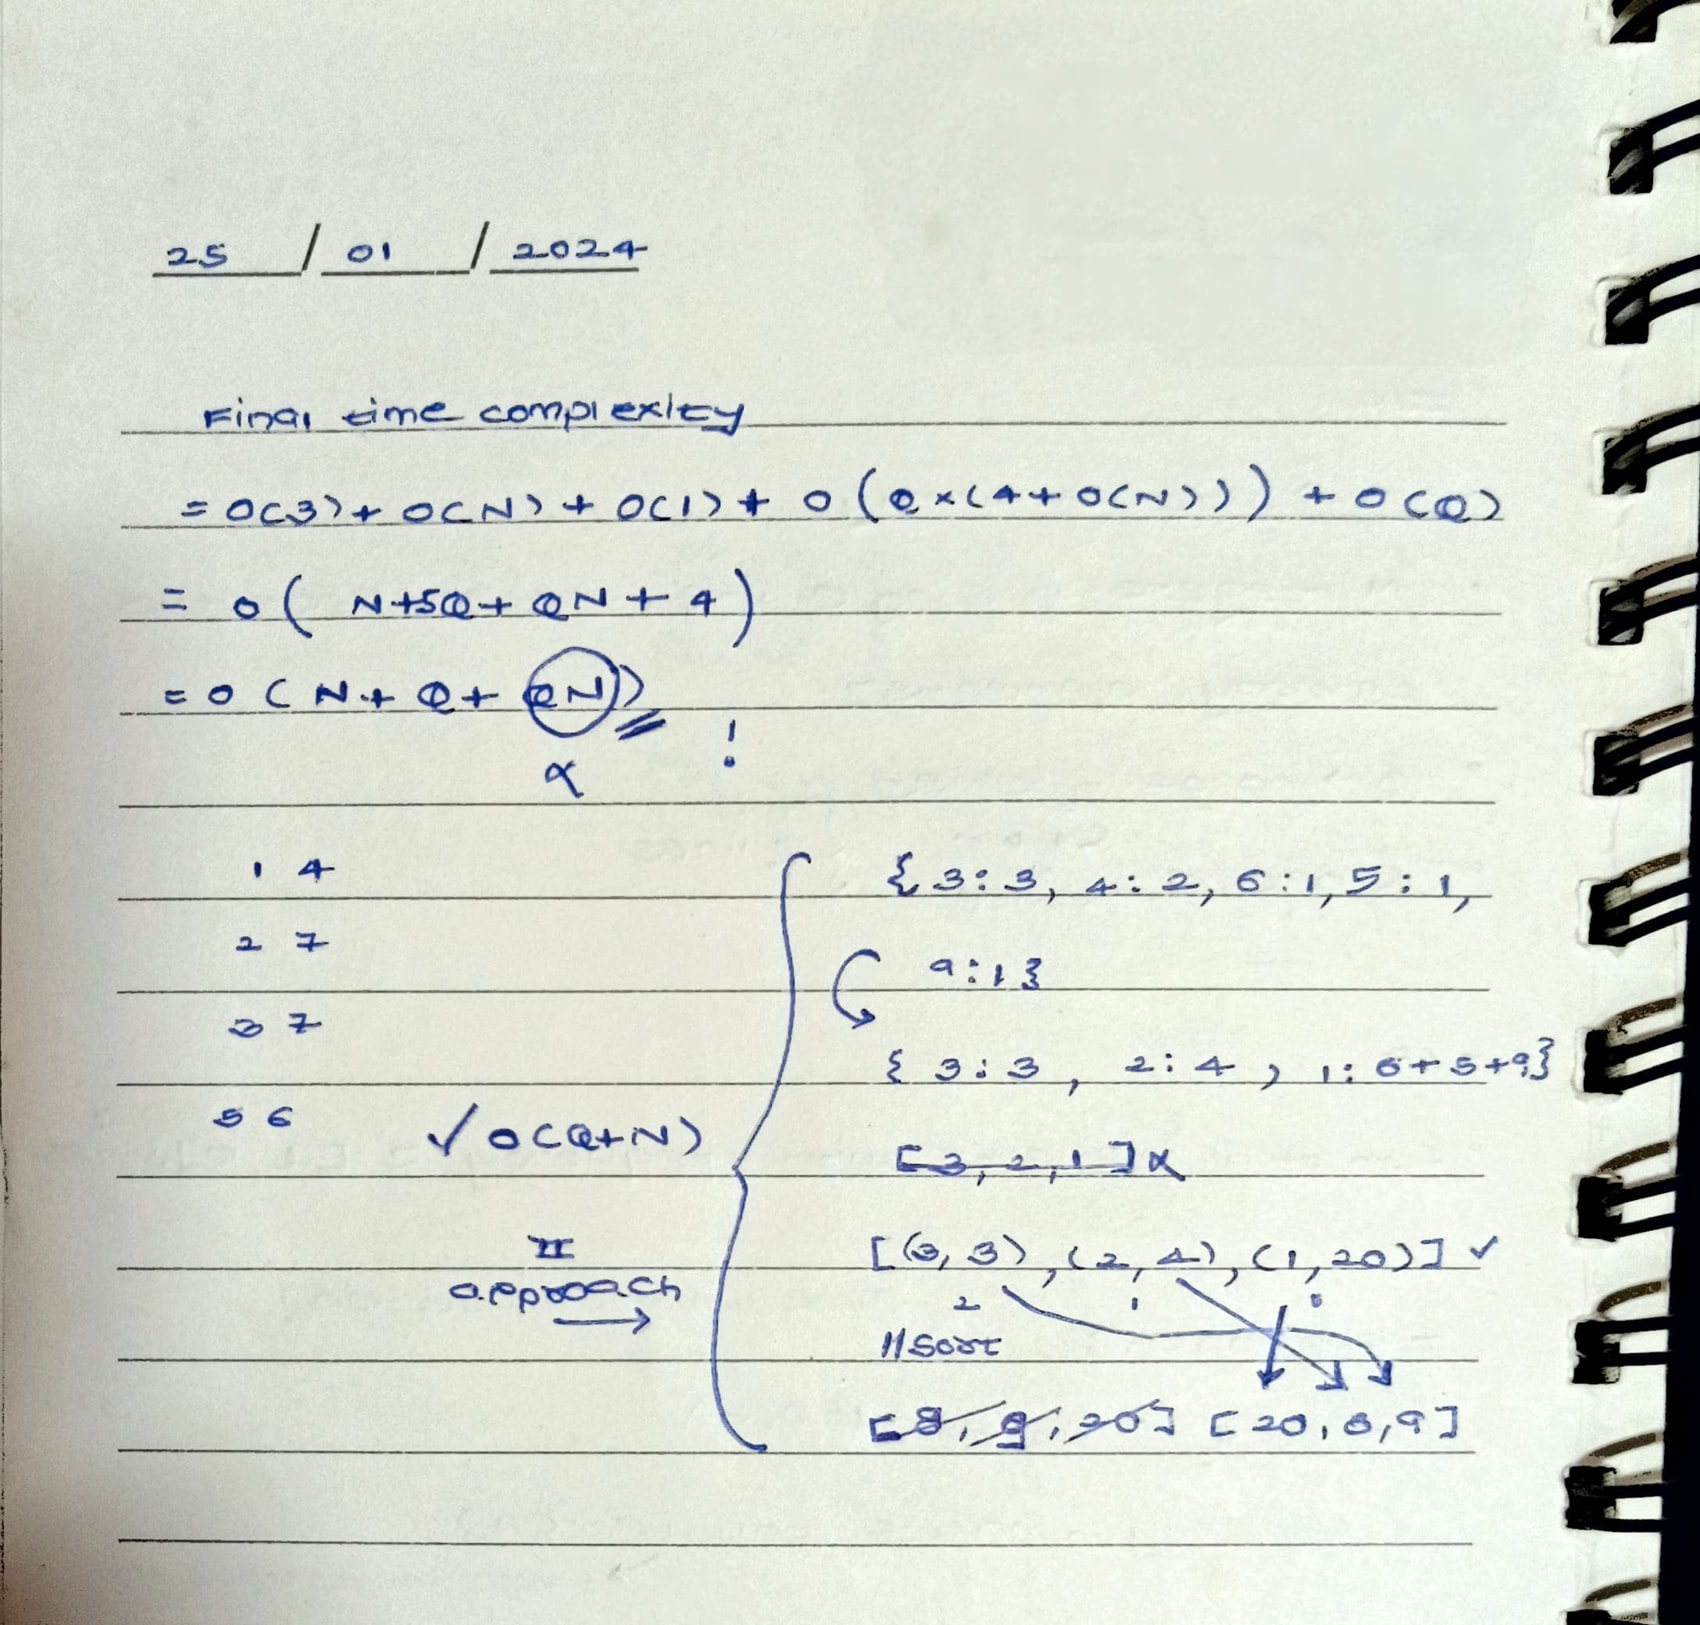 25 / 01 / 2024
Final time complexity
= O(3) + O(N) + O(1) + O(Q×(4+O(N))) + O(Q)
= O( N+5Q+ QN + 4)
= O (N + Q + QN)
x !
1 4
2 7
3 7
5 6
✓ O(Q+N)
II
approach
→
{ 3:3, 4:2, 6:1, 5:1,
9:1}
{ 3:3, 2:4, 1:6+5+9}
[3, 2, 1] x
[(3, 3), (2, 4), (1, 20)] ✓
2 1 0
//sort
[8, 9, 20] [20, 8, 9]